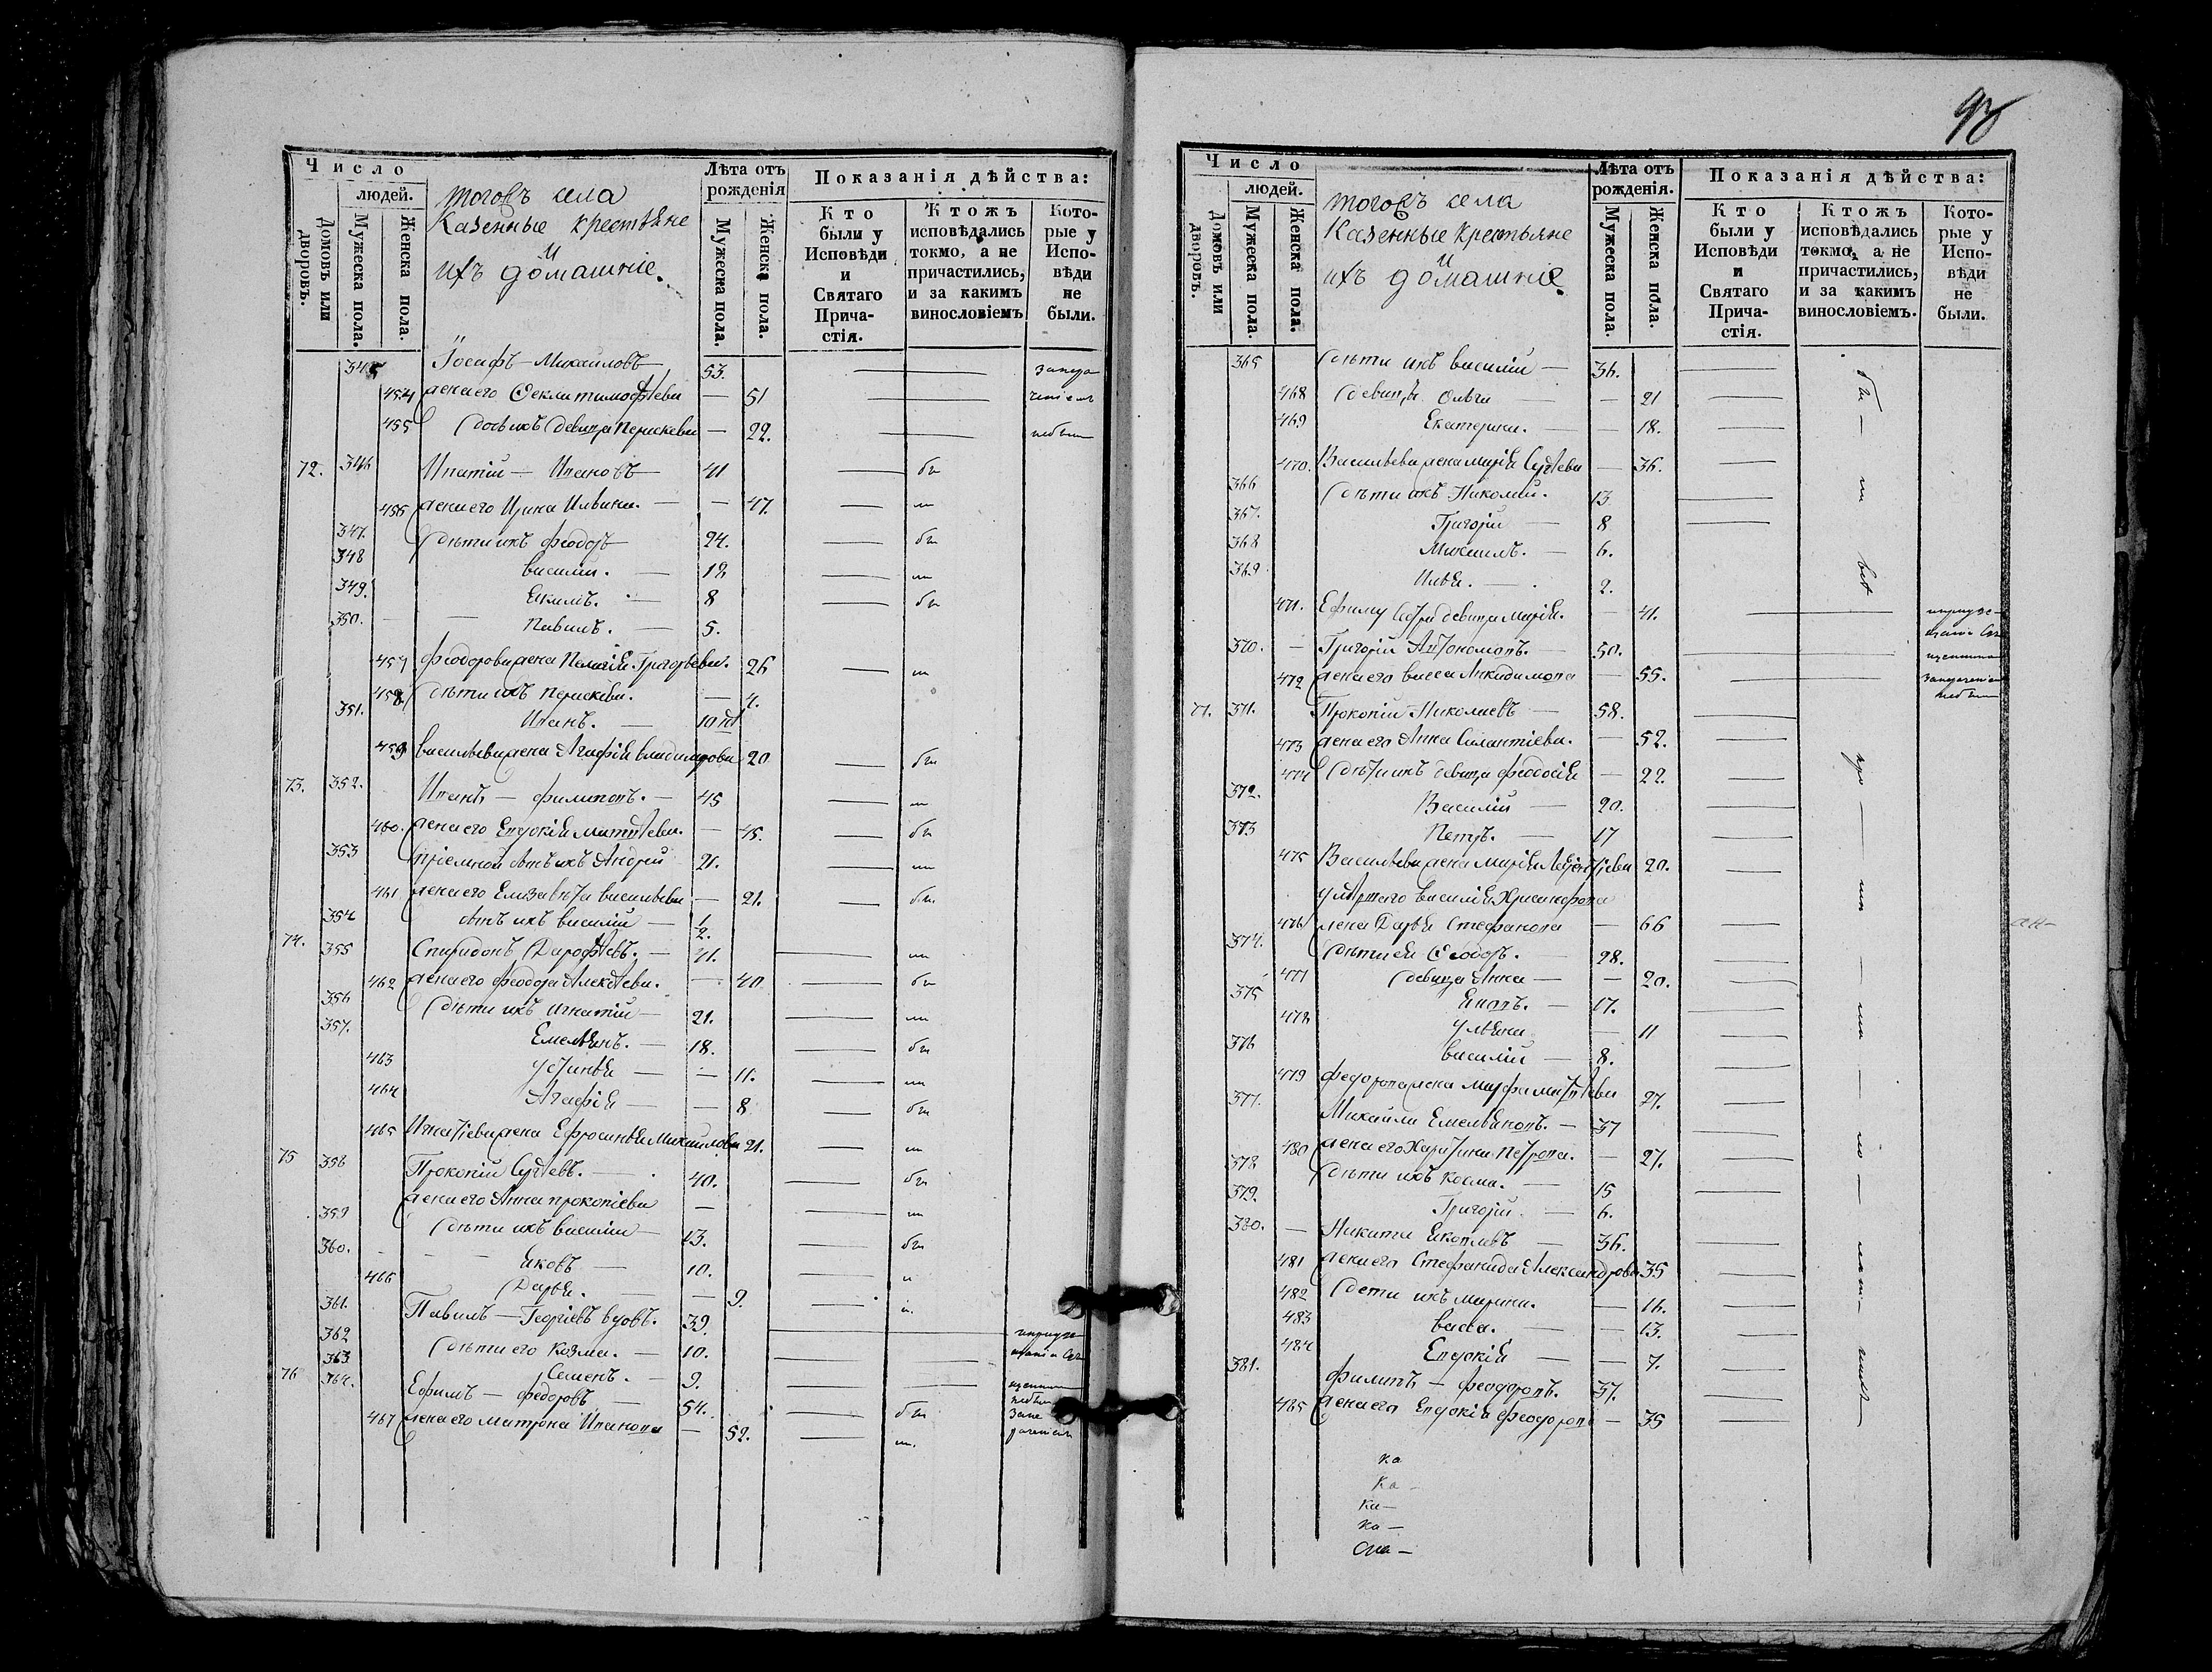 Число
людей.
Домовъ или дворовъ.
Мужеска пола.
Женска пола.
тогожъ села
Казенные крестьяне
и
ихъ домашніе.
Лѣта отъ рожденія
Мужеска пола.
Женска пола.
Показанія дѣйства:
Кто были у Исповѣди и Святаго Причастія.
Ктожъ исповѣдались токмо, а не причастились, и за какимъ винословіемъ
Которые у Исповѣди не были.
345 Іосифъ — Михайловъ 53.
454 жена его Фекла Тимофѣева — 51
455 дочь ихъ девица Параскева — 22.
72. 346 Ипатій — Ивановъ 41
456 жена его Ирина Илвина. — 47.
347. дѣти ихъ Феодоръ 24.
348 Василій. — 12
349. Якимъ. — 8
350. Павилъ. — 5.
457 Феодорова жена Пелагія Григорьева. 26
458 дѣти ихъ Параскева. — 4.
351. Иванъ. — 10 нд
459 Васильева жена Агафія Владимирова 20
73. 352. Иванъ — Филиповъ. — 45
460. жена его Евдокія Матвѣева. — 45.
353 пріемной сынъ ихъ Андрей 21.
461 жена его Елизавѣта Васильева — 21.
354 сынъ ихъ Василій — 1/2.
74. 355 Спиридонъ Дарофѣевъ. — 41.
462 жена его Феодора Алексѣева. — 40
356 дѣти ихъ Игнатій — 21.
357. Емельянъ. — 18.
463 Устинья — 11.
464 Агафія — 8
465 Игнатіева жена Ефросинья Михаилова 21.
75 358 Прокопій Сергѣевъ. — 40.
жена его Анна Прокопіева —
359 дѣти ихъ Василій 13.
360. Яковъ — 10.
466 Дарья. — 9.
361. Павилъ — Георгіевъ вдовъ. 39.
362 дѣти его Козма. — 10.
363 Семенъ. — 9.
76 364. Ефимъ — Федоровъ — 54.
467 жена его Матрона Иванова — 52.
93
Число
людей.
Домовъ или дворовъ.
Мужеска пола.
Женска пола.
тогожъ села
Казенные крестьяне
и
ихъ домашніе.
Лѣта отъ рожденія.
Мужеска пола.
Женска пола.
Показанія дѣйства:
Кто были у Исповѣди и Святаго Причастія.
Ктожъ исповѣдались токмо, а не причастились, и за какимъ винословіемъ.
Которые у Исповѣди не были.
365 дѣти ихъ Василій — 36.
468 девица Ольга — 21
469 Екатерина. — 18.
470. Васильева жена Марія Сергѣева — 36.
366 дѣти ихъ Николай. 13
367. Григорій — 8
368 Михаилъ. — 6.
369 Илья. — 2.
471. Ефиму сестра девица Марія. — 41.
370. Григорій Автономовъ. — 50.
472 жена его Васса Анкидимова — 55.
77. 371. Прокопій Николаевъ — 58.
473 жена его Анна Силантіева. — 52.
474 дѣти ихъ девица Феодосія — 22.
372. Василій — 20.
373 Петръ. — 17
475 Васильева жена Марія Лаврентіева 20.
умершаго Василія Хрисанфова
476 жена Дарья Стефанова — 66
374. дѣти ея Феодоръ. — 28.
477 девица Анна — 20.
375 Яковъ. — 17.
478 Ульяна — 11
376 Василій — 8.
479 Федорова жена Марфа Матвѣева 27.
377. Михаила Емельяновъ. — 37
480 жена его Харитина Петрова. — 27.
378 дѣти ихъ Косма. — 15
379. Григорій. — 6.
380. Никита Яковлевъ — 36.
481 жена его Стефанида Александрова 35
482 дети ихъ Марина. — 16.
483 Васса. — 13.
484 Евдокія — 7.
381. Филипъ — Феодоровъ. 37.
485 жена его Евдокія Феодорова — 35
ка
ка -
ка —
ка —